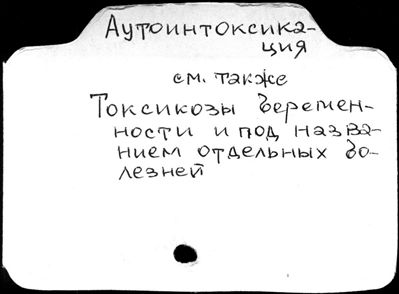 Аутоинтоксика-
ция
см. также
Токсикозы беремен-
ности и под назва-
нием отдельных бо-
лезней